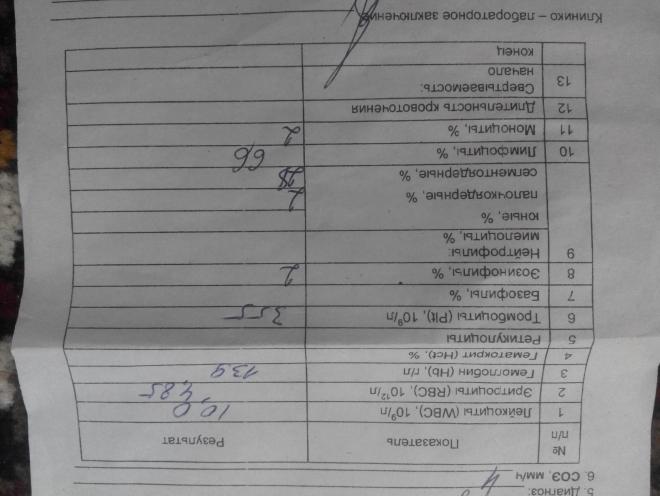 5. Диагноз:
6. СОЭ, мм/ч 4
№ п/п Показатель Результат
1 Лейкоциты (WBC), 10⁹/л 10,0
2 Эритроциты (RBC), 10¹²/л 4,85
3 Гемоглобин (Hb), г/л 139
4 Гематокрит (Hct), %
5 Ретикулоциты
6 Тромбоциты (Plt), 10⁹/л 355
7 Базофилы, %
8 Эозинофилы, % 2
9 Нейтрофилы:
миелоциты, %
юные, %
палочкоядерные, % 2
сегментоядерные, % 28
10 Лимфоциты, % 66
11 Моноциты, % 2
12 Длительность кровотечения
13 Свертываемость:
начало
конец
Клинико – лабораторное заключение